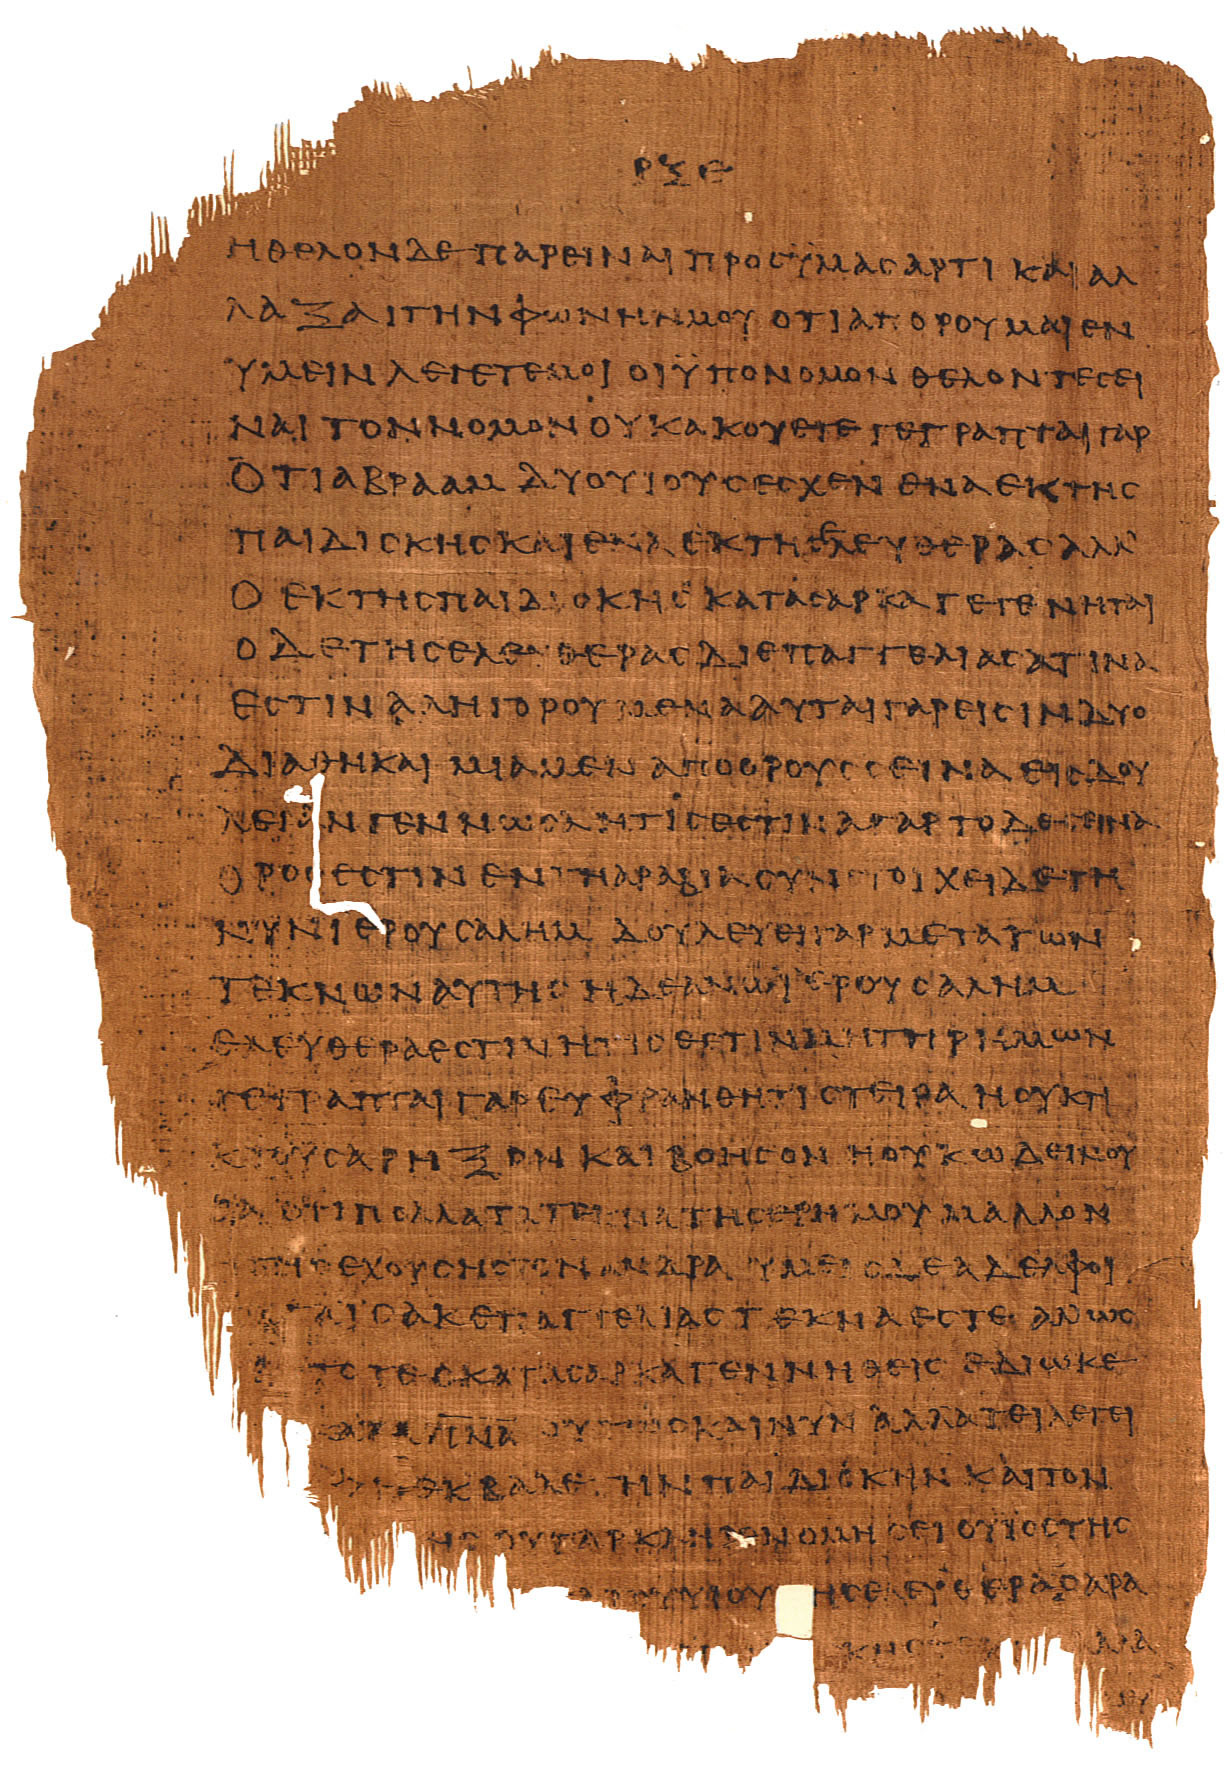 ΡΞΕ
ΗΘΕΛΟΝ ΔΕ ΠΑΡΕΙΝΑΙ ΠΡΟΣ ΫΜΑΣ ΑΡΤΙ ΚΑΙ ΑΛ
ΛΑΞΑΙ ΤΗΝ ΦΩΝΗΝ ΜΟΥ ΟΤΙ ΑΠΟΡΟΥΜΑΙ ΕΝ
ΥΜΕΙΝ ΛΕΓΕΤΕ ΜΟΙ ΟΙ ΫΠΟ ΝΟΜΟΝ ΘΕΛΟΝΤΕΣ ΕΙ
ΝΑΙ ΤΟΝ ΝΟΜΟΝ ΟΥΚ ΑΚΟΥΕΤΕ ΓΕΓΡΑΠΤΑΙ ΓΑΡ
ΟΤΙ ΑΒΡΑΑΜ ΔΥΟ ΥΙΟΥΣ ΕΣΧΕΝ ΕΝΑ ΕΚ ΤΗΣ
ΠΑΙΔΙΣΚΗΣ ΚΑΙ ΕΝΑ ΕΚ ΤΗΣ ΕΛΕΥΘΕΡΑΣ ΑΛΛ
Ο ΕΚ ΤΗΣ ΠΑΙΔΙΣΚΗΣ ΚΑΤΑ ΣΑΡΚΑ ΓΕΓΕΝΗΤΑΙ
Ο ΔΕ ΤΗΣ ΕΛΕΥΘΕΡΑΣ ΔΙ ΕΠΑΓΓΕΛΙΑΣ ΑΤΙΝΑ
ΕΣΤΙΝ ΑΛΛΗΓΟΡΟΥΜΕΝΑ ΑΥΤΑΙ ΓΑΡ ΕΙΣΙΝ ΔΥΟ
ΔΙΑΘΗΚΑΙ ΜΙΑ ΜΕΝ ΑΠΟ ΟΡΟΥΣ ΣΕΙΝΑ ΕΙΣ ΔΟΥ
ΛΕΙΑΝ ΓΕΝΝΩΣΑ ΗΤΙΣ ΕΣΤΙΝ ΑΓΑΡ ΤΟ ΔΕ ΣΕΙΝΑ
ΟΡΟΣ ΕΣΤΙΝ ΕΝ ΤΗ ΑΡΑΒΙΑ ΣΥΝΣΤΟΙΧΕΙ ΔΕ ΤΗ
ΝΥΝ ΙΕΡΟΥΣΑΛΗΜ ΔΟΥΛΕΥΕΙ ΓΑΡ ΜΕΤΑ ΤΩΝ
ΤΕΚΝΩΝ ΑΥΤΗΣ Η ΔΕ ΑΝΩ ΙΕΡΟΥΣΑΛΗΜ
ΕΛΕΥΘΕΡΑ ΕΣΤΙΝ ΗΤΙΣ ΕΣΤΙΝ ΜΗΤΗΡ ΗΜΩΝ
ΓΕΓΡΑΠΤΑΙ ΓΑΡ ΕΥΦΡΑΝΘΗΤΙ ΣΤΕΙΡΑ Η ΟΥ ΚΤΙ
ΚΤΟΥΣΑ ΡΗΞΟΝ ΚΑΙ ΒΟΗΣΟΝ Η ΟΥΚ ΩΔΕΙΝΟΥ
ΣΑ ΟΤΙ ΠΟΛΛΑ ΤΑ ΤΕΚΝΑ ΤΗΣ ΕΡΗΜΟΥ ΜΑΛΛΟΝ
ΤΗΣ ΕΧΟΥΣΗΣ ΤΟΝ ΑΝΔΡΑ ΥΜΕΙΣ ΔΕ ΑΔΕΛΦΟΙ
ΚΑΤΑ ΙΣΑΚ ΕΠΑΓΓΕΛΙΑΣ ΤΕΚΝΑ ΕΣΤΕ ΑΛΛ ΩΣ
ΤΟΤΕ Ο ΚΑΤΑ ΣΑΡΚΑ ΓΕΝΝΗΘΕΙΣ ΕΔΙΩΚΕ
ΚΑΤΑ Π̅Ν̅Α̅ ΟΥΤΩΣ ΚΑΙ ΝΥΝ ΑΛΛΑ ΤΕΙ ΛΕΓΕΙ
ΕΚΒΑΛΕ ΤΗΝ ΠΑΙΔΙΣΚΗΝ ΚΑΙ ΤΟΝ
ΗΣ ΟΥ ΓΑΡ ΚΛΗΡΟΝΟΜΗΣΕΙ Ο ΥΙΟΣ ΤΗΣ
ΤΟΥ ΥΙΟΥ ΤΗΣ ΕΛΕΥΘΕΡΑΣ ΑΡΑ
ΚΗΣ ΤΕΚΝΑ ΑΛΛΑ